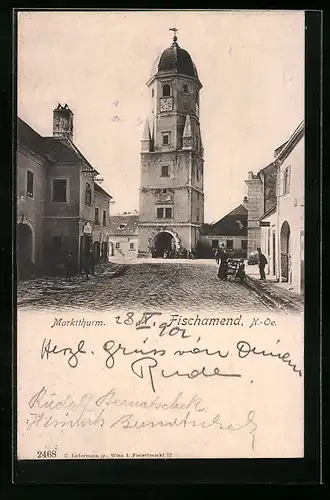 Marktthurm. 28 IV. 901 Fischamend. N.-Oe.
Herzl. Grüß von Deinem
Rudi
Rudolf Bernatschek
2468 C. Ledermann jr., Wien I. Fleischmarkt 12